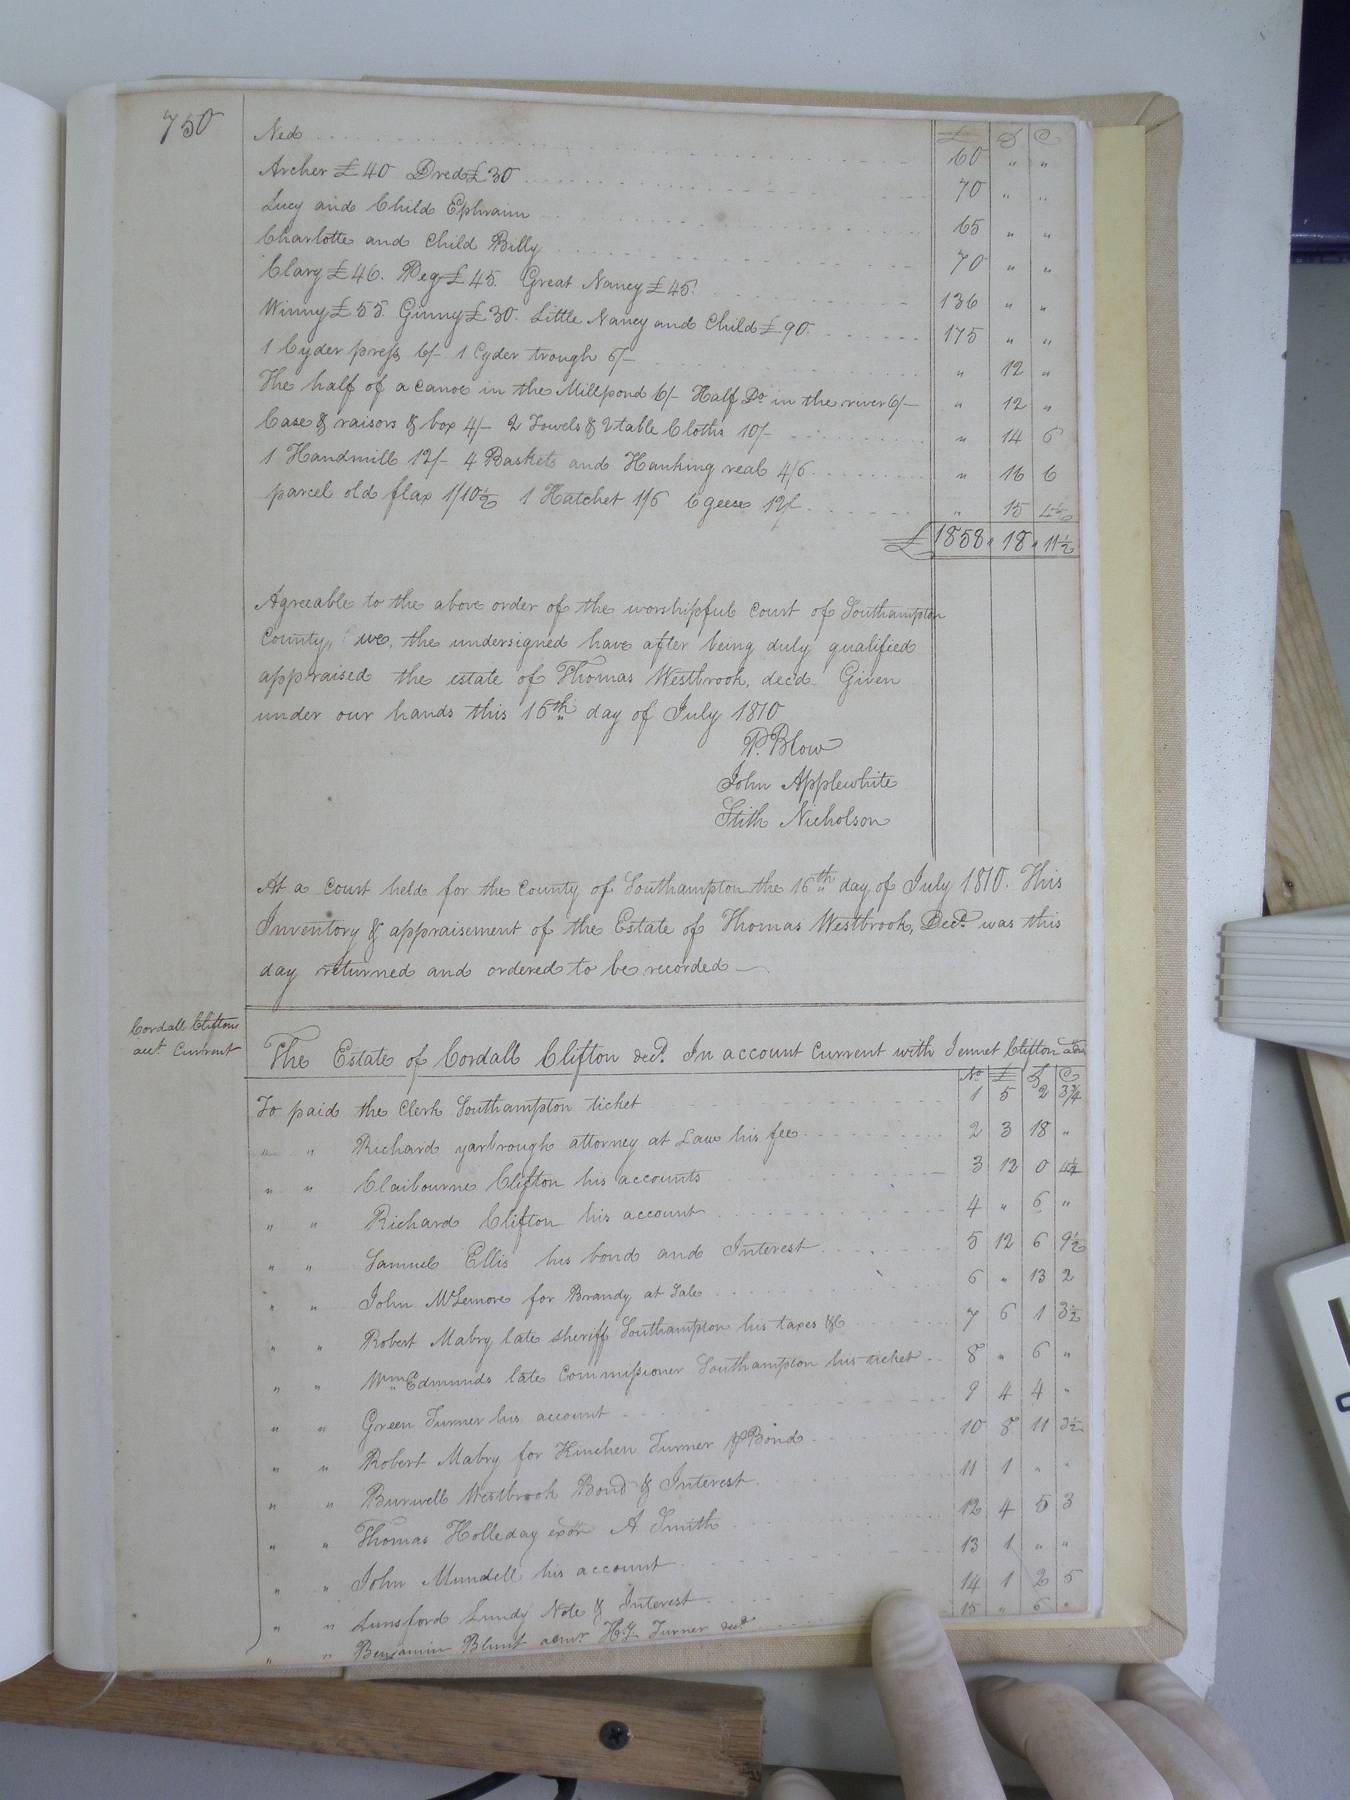 750
£ S D
Ned 60 " "
Archer £40 Dred £30 70 " "
Lucy and Child Ephraim 65 " "
Charlotte and Child Billy 70 " "
Clary £46. Peg £45. Great Nancy £45. 136 " "
Winny £55. Ginny £30. Little Nancy and Child £90. 175 " "
1 Cyder press 6/- 1 Cyder trough 6/- " 12 "
The half of a canoe in the Millpond 6/- Half Do in the river 6/- " 12 "
Case & raisors & box 4/- 2 Towels & 2 table Cloths 10/- " 14 6
1 Handmill 12/- 4 Baskets and Hanking real 4/6 " 16 6
parcel old flax 1/10½ 1 Hatchet 1/6 6 geese 12/- " 15 4½
£ 1858 " 18 " 11½
Agreeable to the above order of the worshipful court of Southampton
County, we, the undersigned have after being duly qualified
appraised the estate of Thomas Westbrook, decd. Given
under our hands this 16th day of July 1810
P. Blow
John Applewhite
Stith Nicholson
At a Court held for the County of Southampton the 16th day of July 1810. This
Inventory & appraisement of the Estate of Thomas Westbrook, Decd. was this
day returned and ordered to be recorded
Cordall Cliftons
acct. Current
The Estate of Cordall Clifton decd. In account Current with Jennet Clifton adm
No £ S D
To paid the Clerk Southampton ticket 1 5 2 3¾
" " Richard yarbrough attorney at Law his fee 2 3 18 "
" " Claibourne Clifton his accounts 3 12 0 4½
" " Richard Clifton his account 4 " 6 "
" " Samuel Ellis his bond and Interest 5 12 6 9½
" " John McLemore for Brandy at Sale 6 " 13 2
" " Robert Mabry late sheriff Southampton his taxes &c 7 6 1 3½
" " Wm Edmunds late Commissioner Southampton his ticket 8 " 6 "
" " Green Turner his account 9 4 4 "
" " Robert Mabry for Kinchen Turner Bond 10 8 11 3½
" " Burwell Westbrook Bond & Interest 11 1 " "
" " Thomas Holleday exor A Smith 12 4 5 3
" " John Mundell his account 13 1 " "
" " Lunsford Lundy Note & Interest 14 1 2 5
" " Benjamin Blunt admr H. Turner decd 15 " 6 "